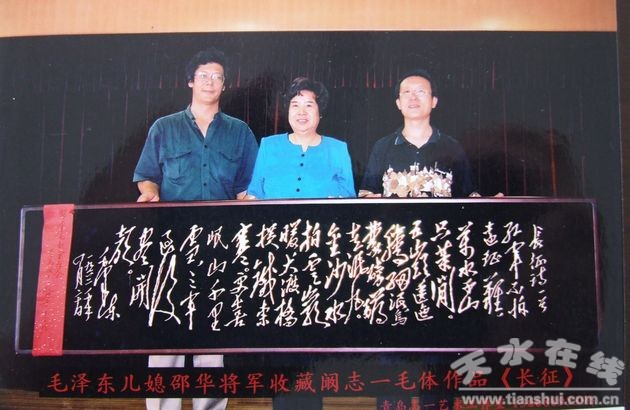 长征诗一首
红军不怕
远征难
万水千山
只等闲
五岭逶迤
腾细浪乌
蒙磅礴
走泥丸
金沙水
拍云崖
暖大渡桥
横铁索
寒更喜
岷山千里
雪三军
过后
尽开
颜
毛泽东
毛泽东儿媳邵华将军收藏阚志一毛体作品《长征》
天水在线
www.tianshui.com.cn